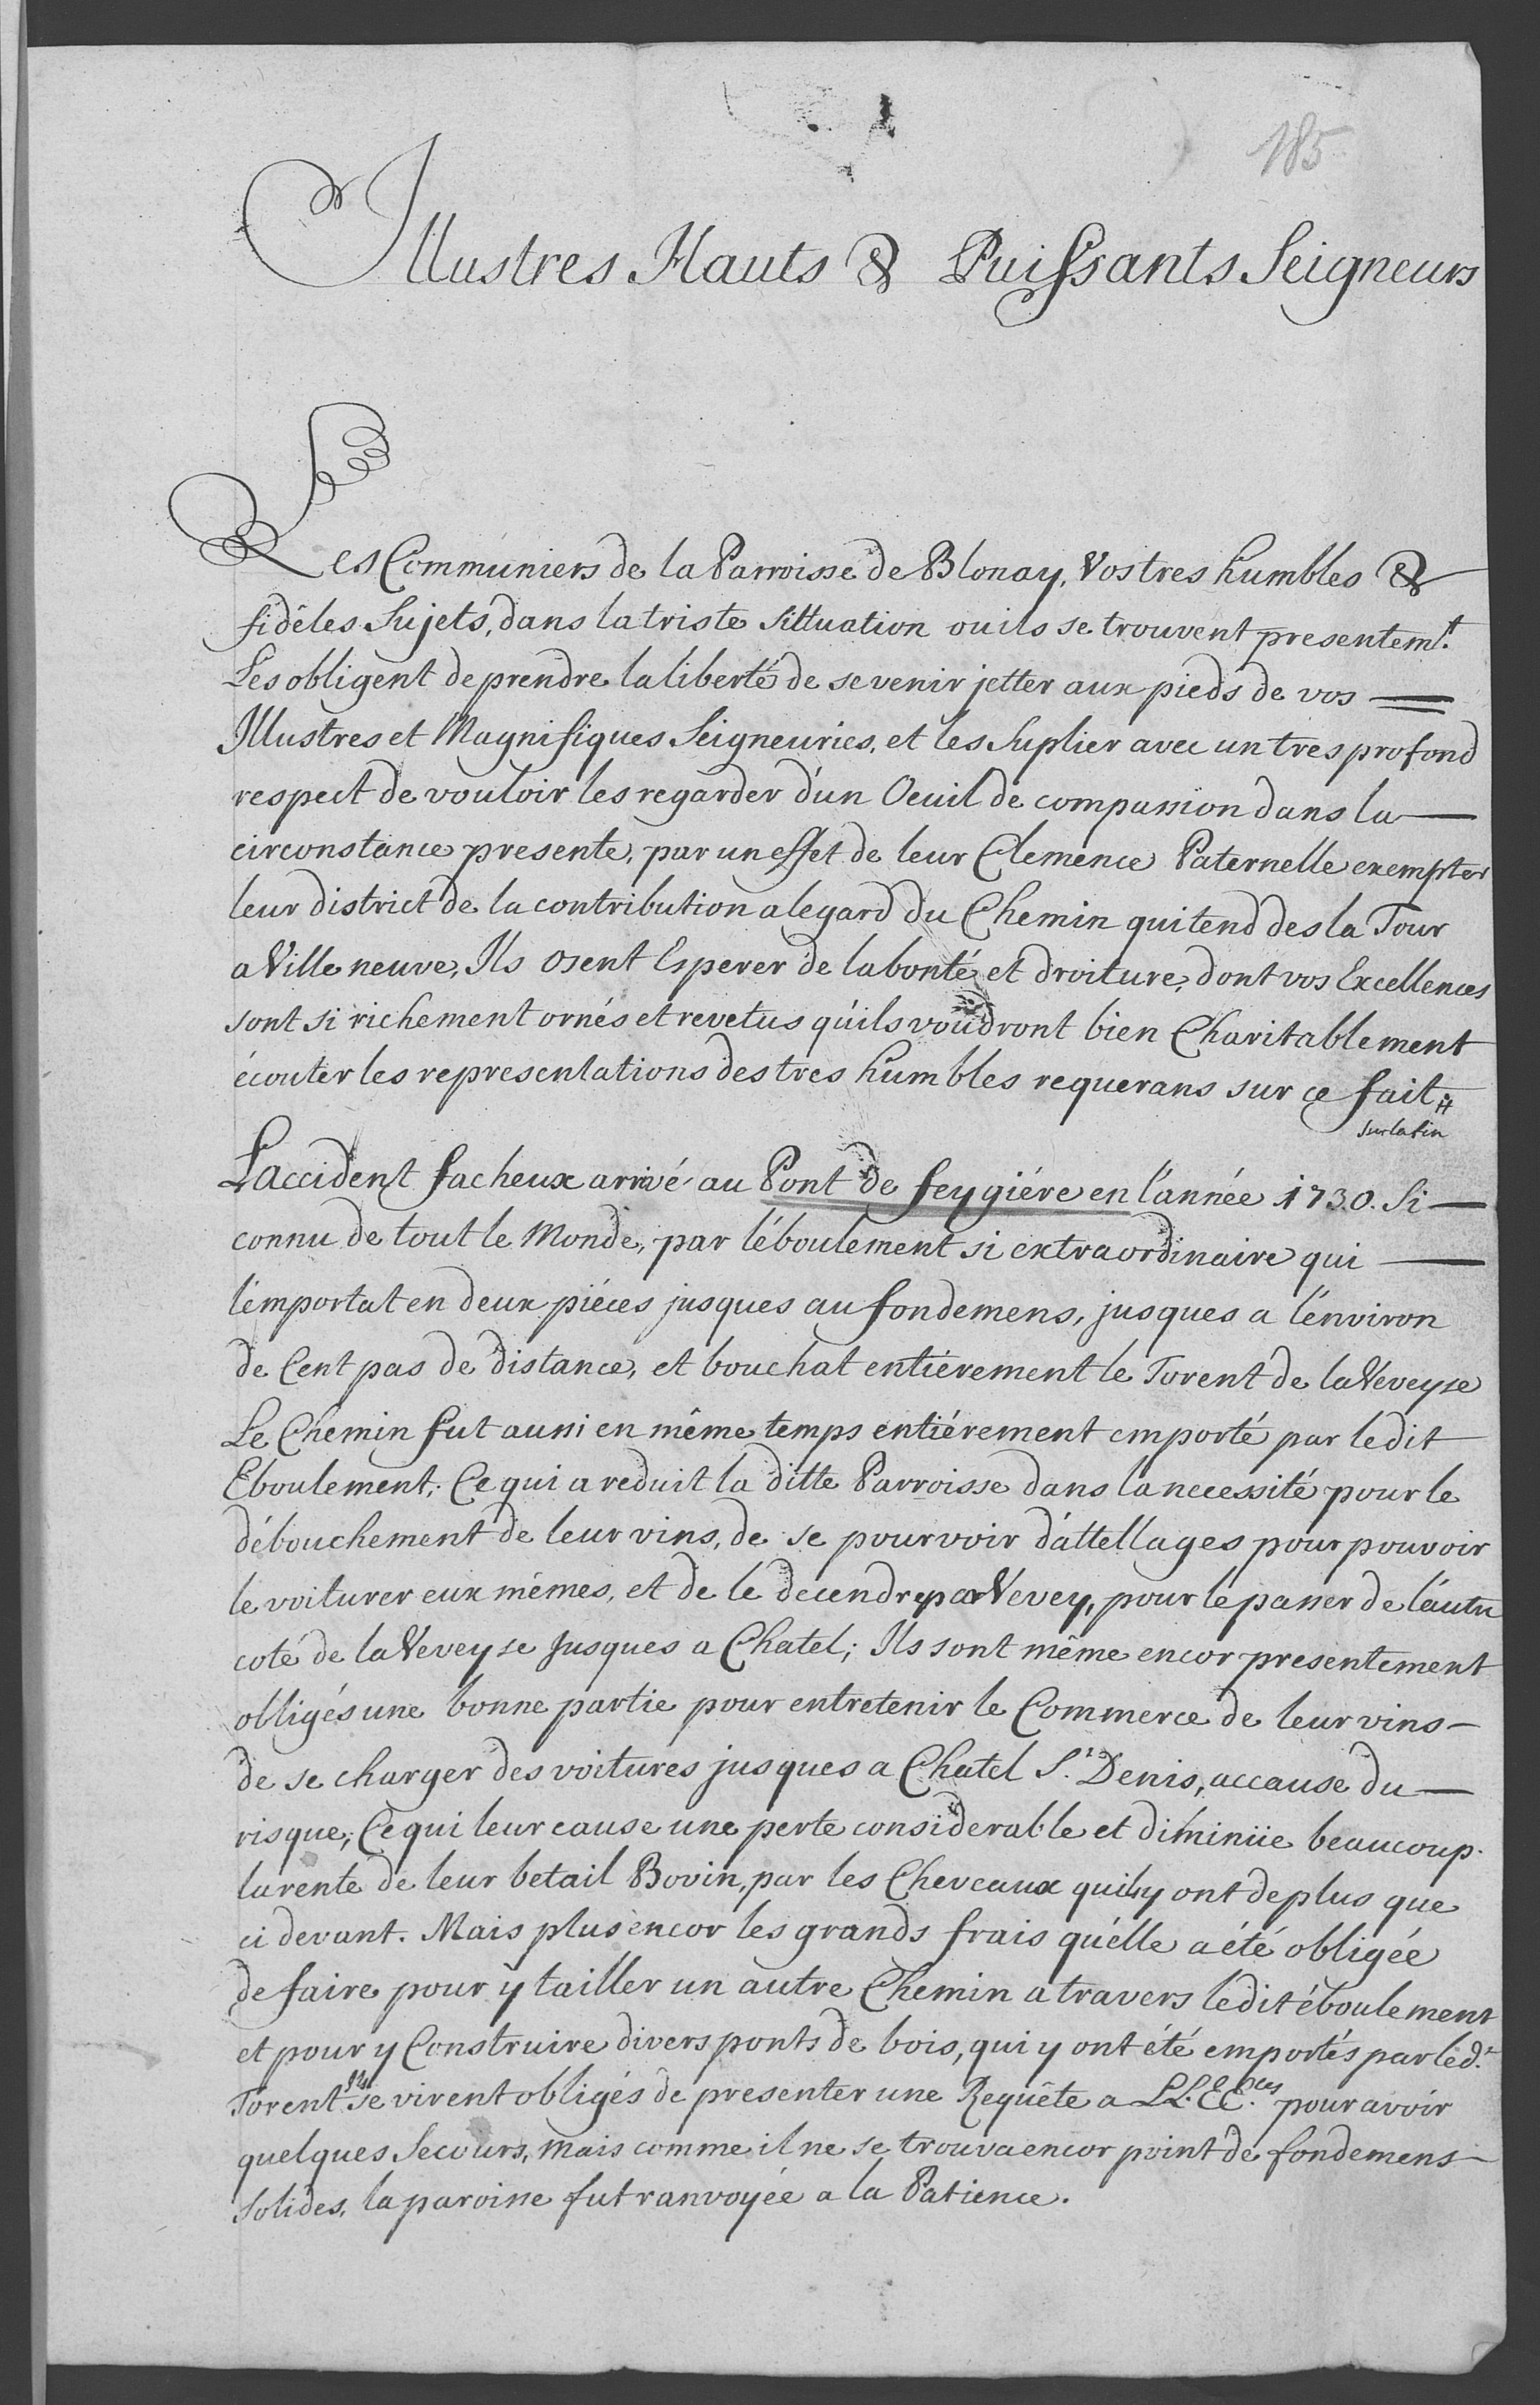 185
Illustres Hauts & Puissants Seigneurs
Les Communiers de la Parroisse de Blonay, Vos tres humbles &
fidéles Sujets, dans la triste Sittuation ou ils se trouvent presentemt.
Les obligent de prendre la liberté de se venir jetter aux pieds de vos
Illustres et Magnifiques Seigneuries, et les Suplier avec un tres profond
respect de vouloir les regarder d'un Oeuil de compassion dans la
circonstance presente, par un effet de leur Clemence Paternelle exempter
leur district de la contribution a legard du Chemin qui tend des la Tour
a Ville neuve, Ils osent Esperer de la bonté et droiture, dont vos Excellences
sont si richement ornés et revetus qu'ils voudront bien Charitablement
écouter les representations des tres humbles requerans sur ce fait #
sur la fin
L'accident facheux arrivé au Pont de feygiére en l'année 1730. Si
connu de tout le Monde, par l'éboulement si extraordinaire qui
l'emportat en deux piéces jusques au fondemens, jusques a l'énviron
de Cent pas de distance, et bouchat entiérement le Torent de la Veveyse
Le Chemin fut aussi en même temps entiérement emporté par le dit
Eboulement; Ce qui a reduit la ditte Parroisse dans la necessité pour le
débouchement de leur vins, de se pourvoir d'attellages pour pouvoir
le voiturer eux mêmes, et de le decendre par Vevey, pour le passer de l'autre
coté de la Veveyse Jusques a Chatel; Ils sont même encor presentement
obligés une bonne partie pour entretenir le Commerce de leur vins
de se charger des voitures jusques a Chatel St. Denis, accause du
risque; Ce qui leur cause une perte considerable et diminüe beaucoup
la rente de leur betail Bovin, par les Cheveaux quil y ont de plus que
ci devant. Mais plus encor les grands frais qu'élle a été obligée
de faire pour y tailler un autre Chemin a travers le dit éboulement
et pour y Construire divers ponts de bois, qui y ont été emportés par led.t
Torent Ils se virent obligés de presenter une Requête a LL. EE.ces pour avoir
quelques Secours, mais comme il ne se trouva encor point de fondemens
Solides, la paroisse fut ranvoyée a la Patience.